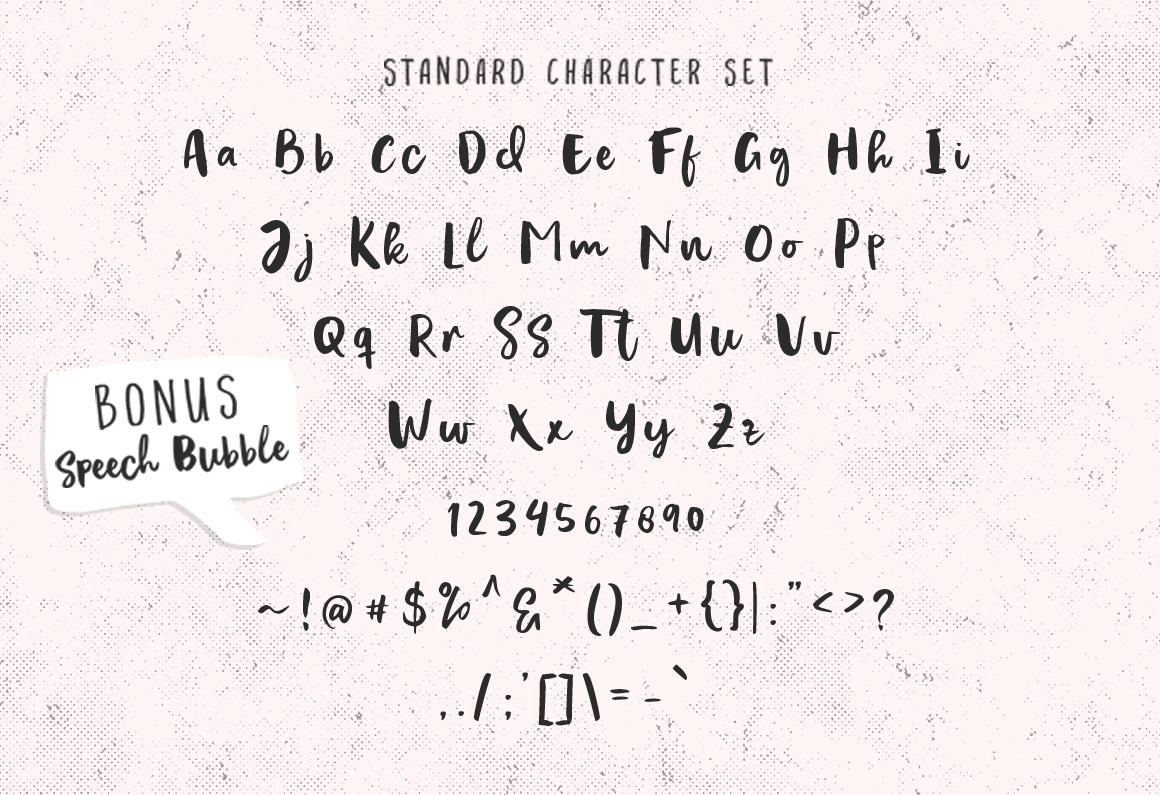 STANDARD CHARACTER SET
Aa Bb Cc Dd Ee Ff Gg Hh Ii
Jj Kk Ll Mm Nn Oo Pp
Qq Rr Ss Tt Uu Vv
BONUS
Speech Bubble
Ww Xx Yy Zz
1234567890
~!@#$%^&*()_+{}|:"<>?
,./;'[]\=-`